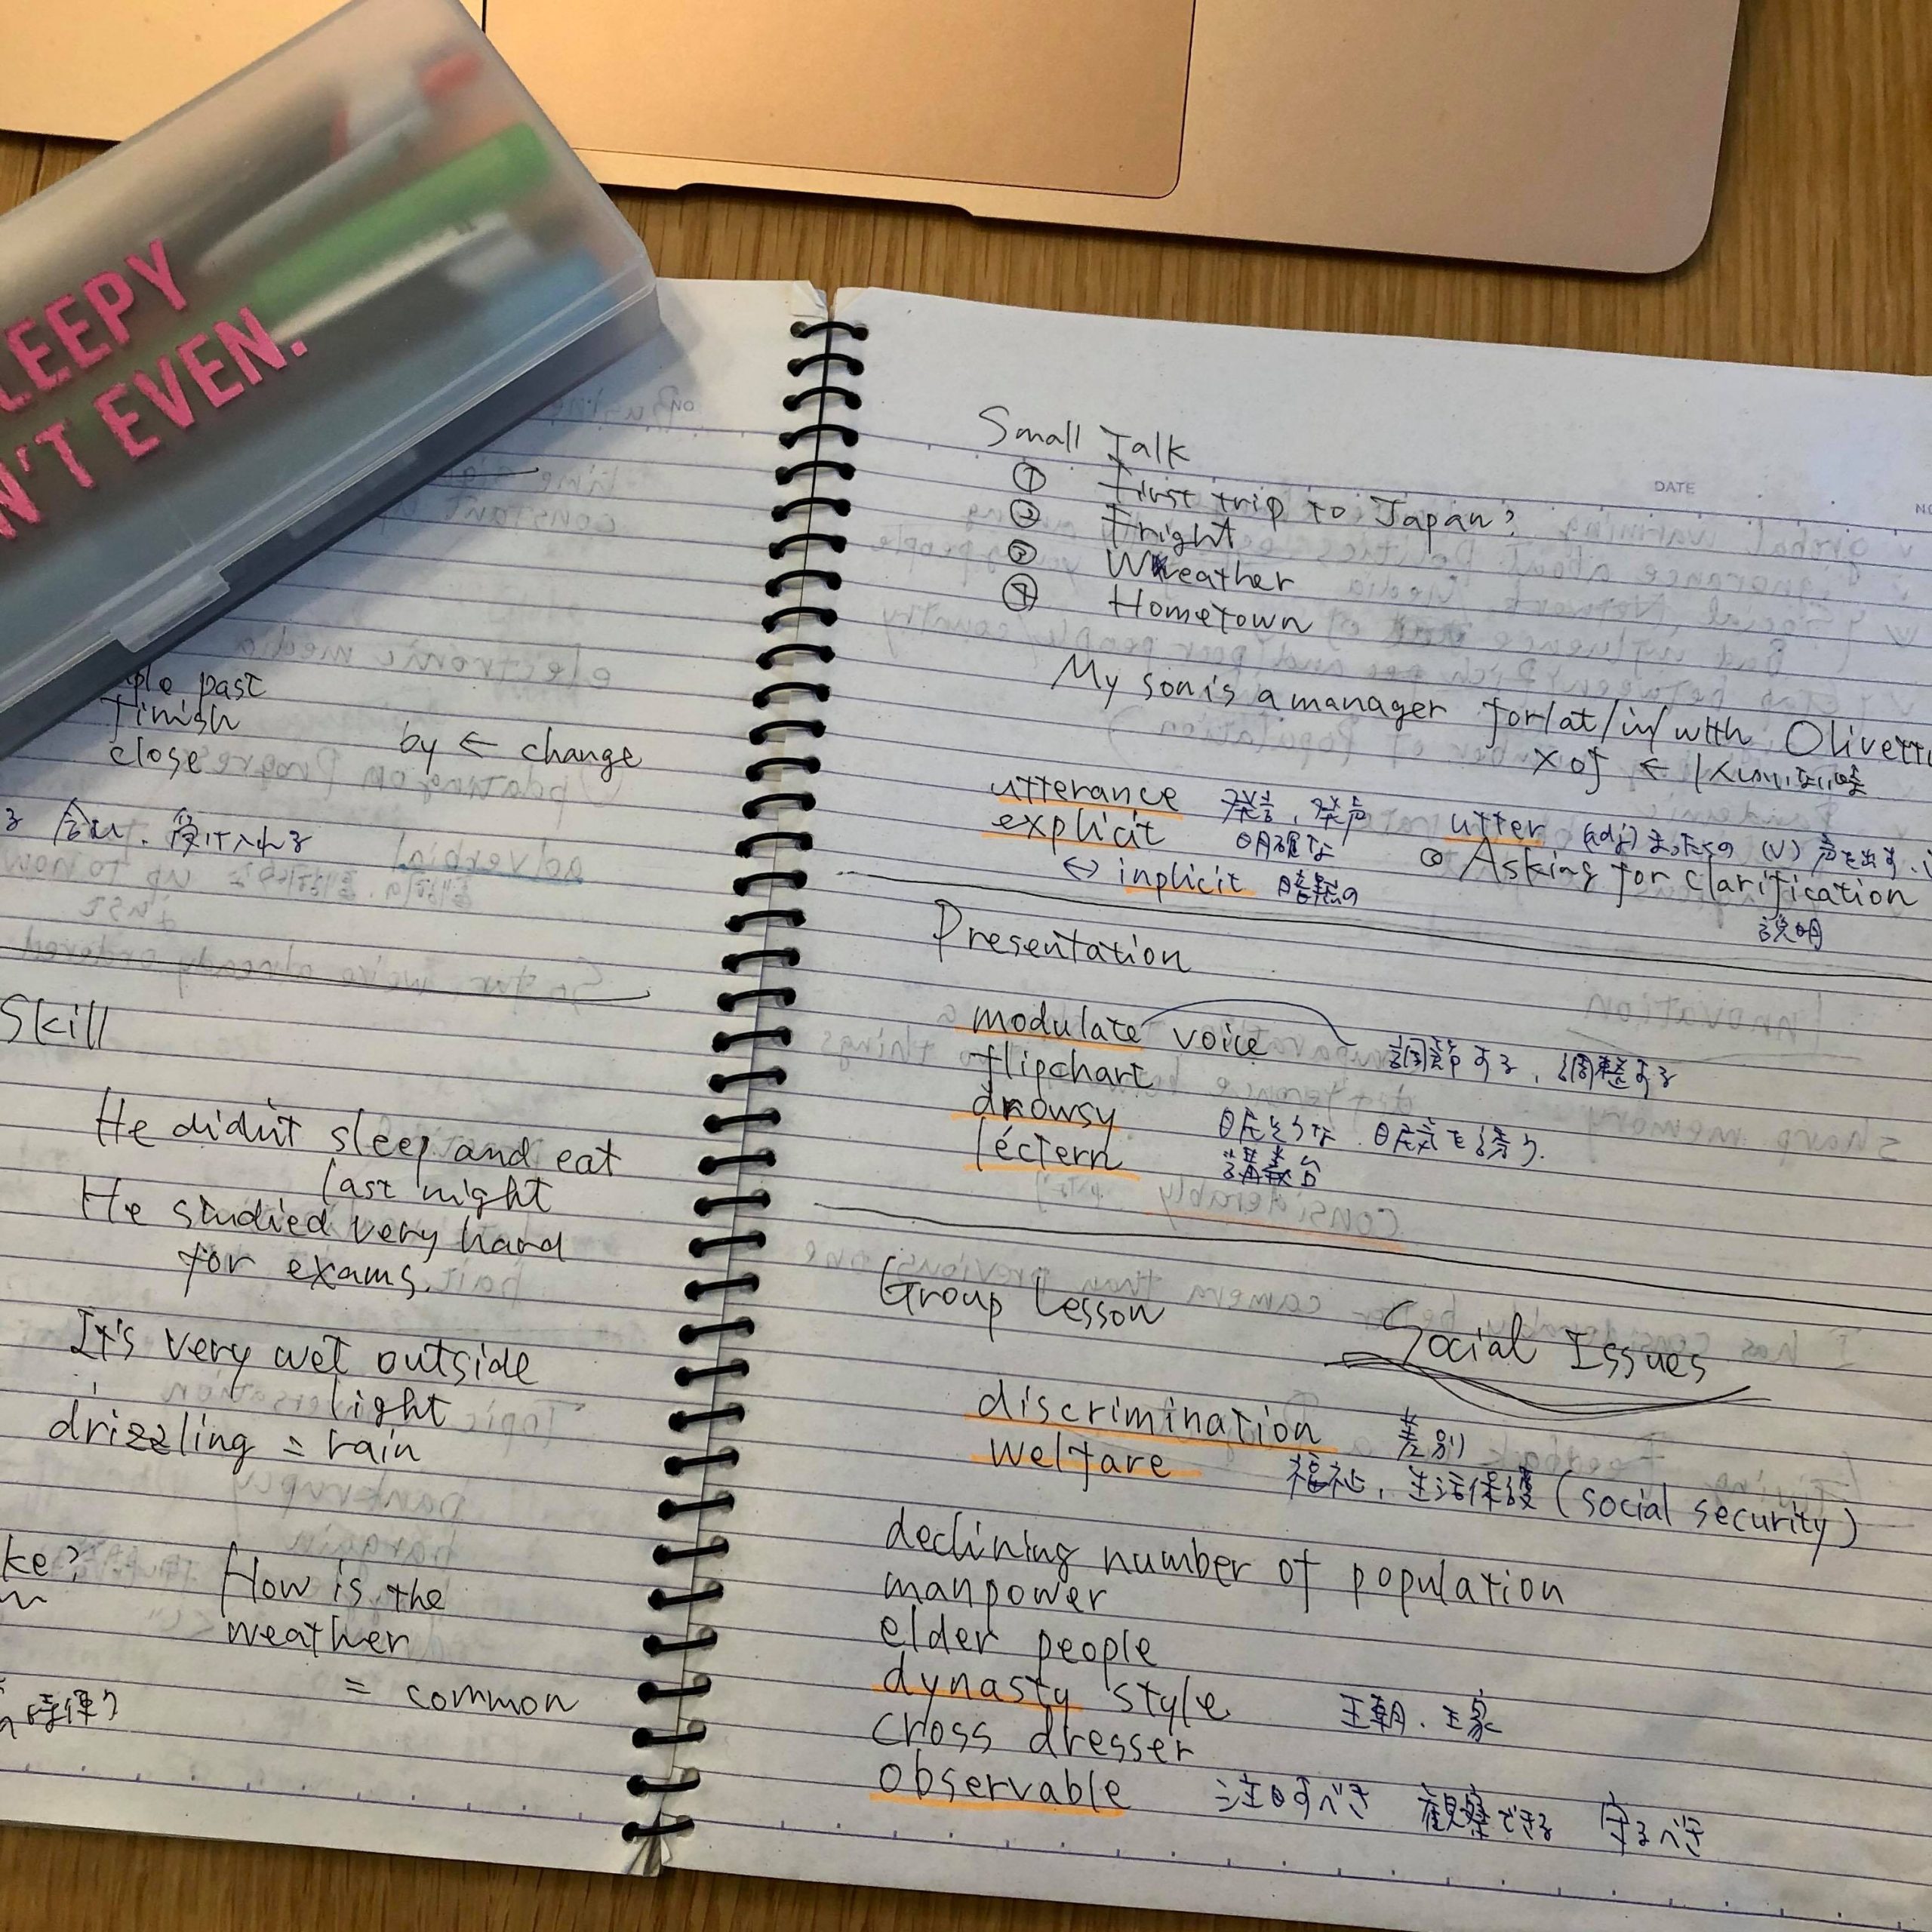 LEEPY
N'T EVEN.
ple past
finish
close by ← change
る 含む、受け入れる
Skill
He didn't sleep and eat
last night
He studied very hard
for exams.
It's very wet outside
light
drizzling = rain
ke? How is the
weather
= common
DATE
Small Talk
① First trip to Japan?
② Fright
③ Weather
④ Hometown
My son is a manager for/at/in/with Olivetti
× of ←
utterance 発言、発声 utter (adj) まったくの (v) 声を出す、
explicit 明確な ◎ Asking for clarification
↔ inplicit 暗黙の 説明
Presentation
modulate voice 調節する、調整する
flipchart
drowsy 眠そうな、眠気を誘う.
léctern 講義台
Group Lesson Social Issues
discrimination 差別
welfare 福祉、生活保護 (social security)
declining number of population
manpower
elder people
dynasty style 王朝、王家
cross dresser
observable 注目すべき 観察できる 守るべき